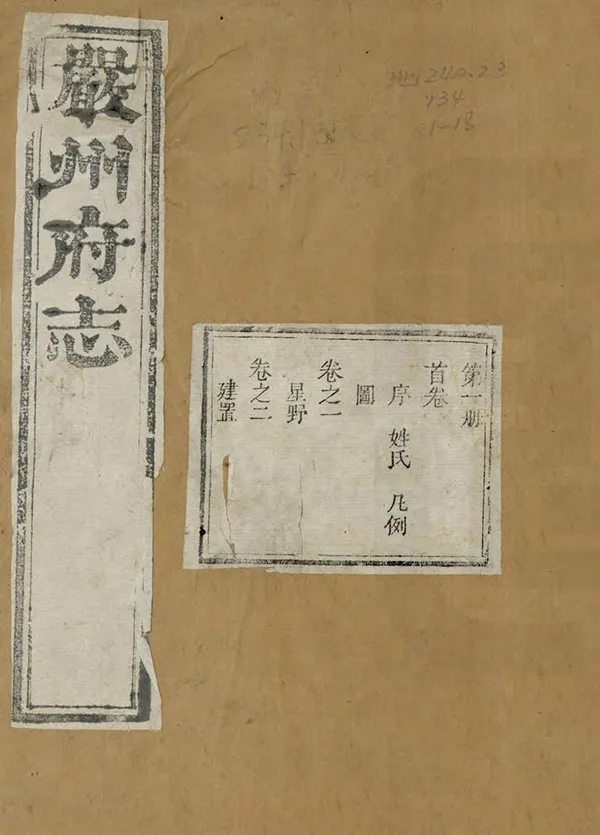 嚴州府志
第一册
首卷
序 姓氏 凡例
圖
卷之一
星野
卷之二
建置
地240.23
734
1-18